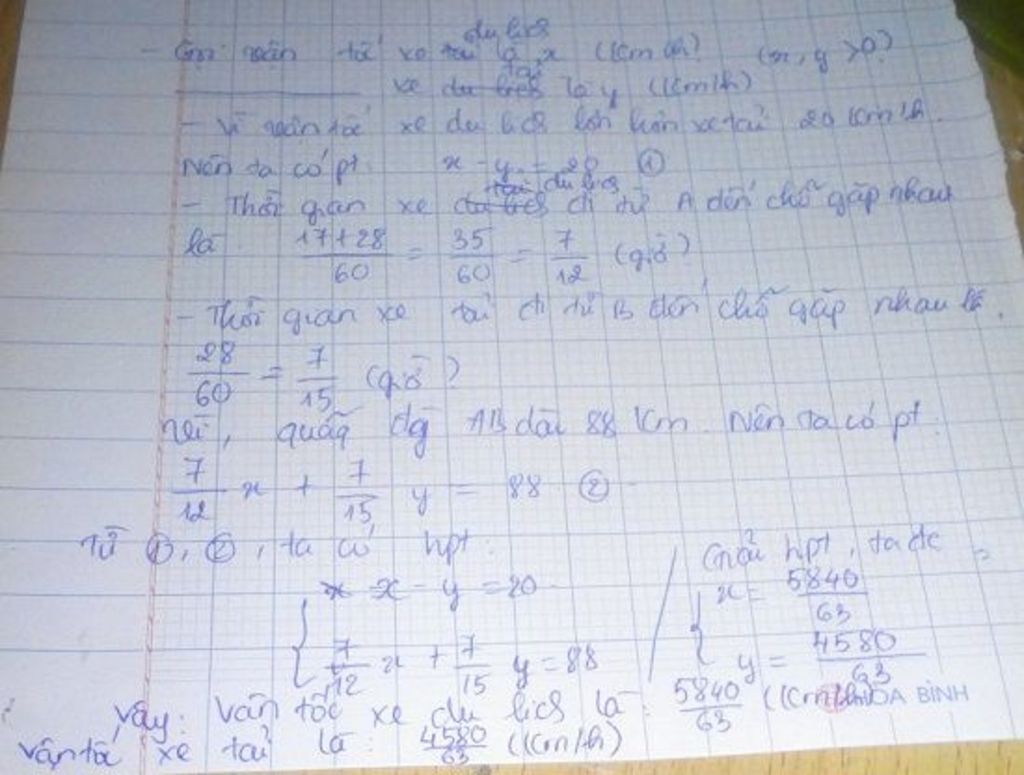 - Gọi vận tốc xe du lịch là x (km/h) (x, y > 0)
xe tải là y (km/h)
- Vì vận tốc xe du lịch lớn hơn xe tải 20 km/h.
Nên ta có pt: x - y = 20 ①
- Thời gian xe du lịch đi từ A đến chỗ gặp nhau
là 17+28/60 = 35/60 = 7/12 (giờ)
- Thời gian xe tải đi từ B đến chỗ gặp nhau là.
28/60 = 7/15 (giờ)
Vì, quãg đg AB dài 88 km. Nên ta có pt.
7/12 x + 7/15 y = 88 ②
Từ ①, ②, ta có hpt:
{ x - y = 20
7/12 x + 7/15 y = 88
Giải hpt, ta đc
{ x = 5840/63
y = 4580/63
Vậy: Vận tốc xe du lịch là: 5840/63 (km/h)
vận tốc xe tải là: 4580/63 (km/h)
HÒA BÌNH